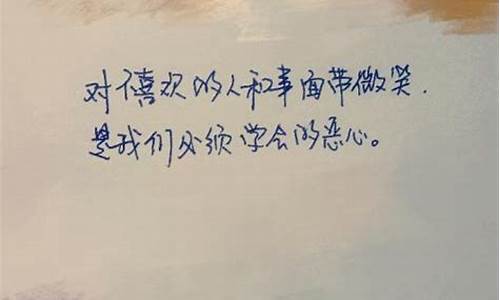 对不喜欢的人和事面带微笑.
是我们必须学会的恶心。